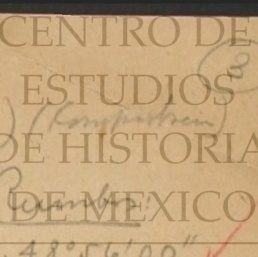 CENTRO DE
3
ESTUDIOS
DE HISTORIA
Rumbos
DE MEXICO
48° 56' 00"